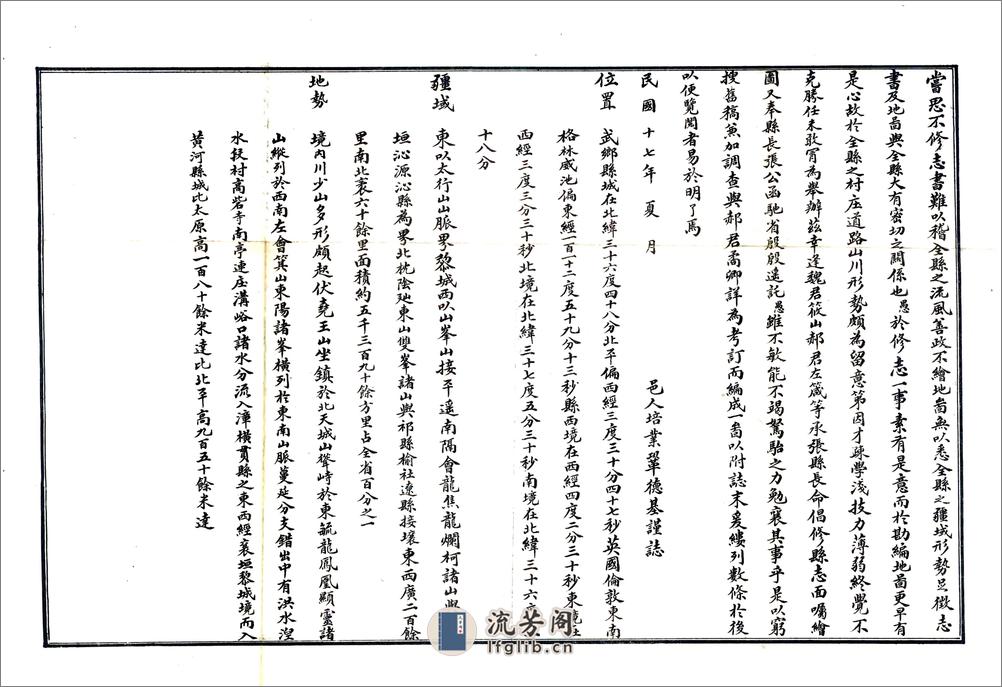 嘗思不修志書難以稽全縣之流風善政不繪地啚無以悉全縣之疆域形勢足徵志
書及地啚與全縣大有密切之關係也愚於修志一事素有是意而於勘編地啚更早有
是心故於全縣之村庄道路山川形勢頗為留意第因才疎學淺技力薄弱終覺不
克勝任未敢冐為舉辦茲幸逢魏君筱山郝君左箴等承張縣長命倡修縣志面囑繪
圖又奉縣長張公函馳省殷殷遠託愚雖不敏能不竭駑駘之力勉襄其事乎是以窮
搜舊稿兼加調查與郝君燾卿詳為考訂而編成一啚以附誌末爰縷列數條於後
以便覽閱者易於明了焉
民國十七年夏 月 邑人培業鞏德基謹誌
位置 武鄉縣城在北緯三十六度四十八分北平偏西經三度三十分四十七秒英國倫敦東南
格林威池偏東經一百十二度五十九分十三秒縣西境在西經四度二分三十秒東境在
西經三度三分三十秒北境在北緯三十七度五分三十秒南境在北緯三十六度
十八分
疆域 東以太行山山脈界黎城西以山峯山接平遥南隔會龍焦龍爛柯諸山與
垣沁源沁縣為界北枕陰地東山雙峯諸山與祁縣榆社遼縣接壤東西廣二百餘
里南北袤六十餘里面積約五千三百九十餘方里占全省百分之一
地勢 境內川少山多形頗起伏堯王山坐鎮於北天城山聳峙於東毓龍鳳凰顯靈諸
山縱列於西南左會箕山東陽諸峯橫列於東南山脈蔓延分支錯出中有洪水涅
水段村高砦寺南亭連庄溝峪口諸水分流入漳橫貫縣之東西經襄垣黎城境而入
黃河縣城比太原高一百八十餘米達比北平高九百五十餘米達
流芳阁
lfglib.cn